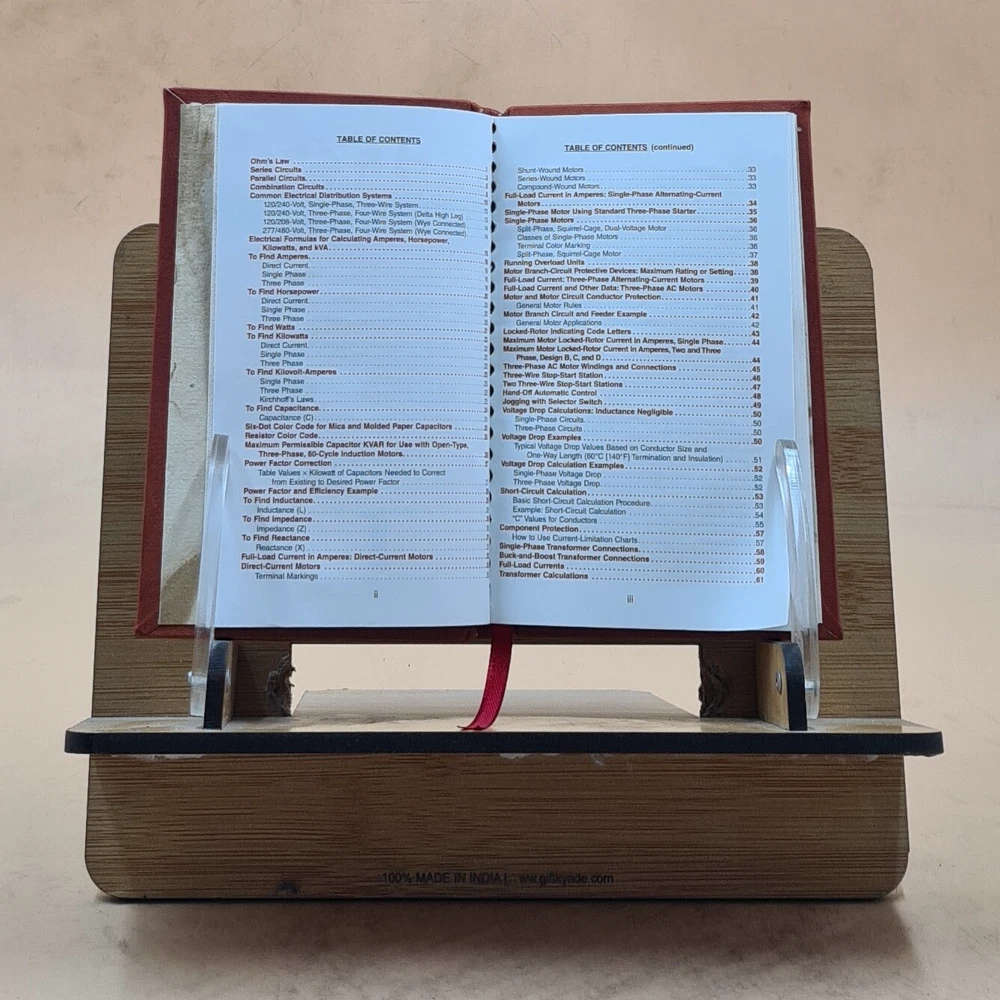 TABLE OF CONTENTS
Ohm's Law
Series Circuits
Parallel Circuits
Combination Circuits
Common Electrical Distribution Systems
120/240-Volt, Single-Phase, Three-Wire System
120/240-Volt, Three-Phase, Four-Wire System (Delta High Leg)
120/208-Volt, Three-Phase, Four-Wire System (Wye Connected)
277/480-Volt, Three-Phase, Four-Wire System (Wye Connected)
Electrical Formulas for Calculating Amperes, Horsepower,
Kilowatts, and kVA
To Find Amperes
Direct Current
Single Phase
Three Phase
To Find Horsepower
Direct Current
Single Phase
Three Phase
To Find Watts
To Find Kilowatts
Direct Current
Single Phase
Three Phase
To Find Kilovolt-Amperes
Single Phase
Three Phase
Kirchhoff's Laws
To Find Capacitance
Capacitance (C)
Six-Dot Color Code for Mica and Molded Paper Capacitors
Resistor Color Code
Maximum Permissible Capacitor KVAR for Use with Open-Type,
Three-Phase, 60-Cycle Induction Motors
Power Factor Correction
Table Values × Kilowatt of Capacitors Needed to Correct
from Existing to Desired Power Factor
Power Factor and Efficiency Example
To Find Inductance
Inductance (L)
To Find Impedance
Impedance (Z)
To Find Reactance
Reactance (X)
Full-Load Current in Amperes: Direct-Current Motors
Direct-Current Motors
Terminal Markings
ii
TABLE OF CONTENTS (continued)
Shunt-Wound Motors 33
Series-Wound Motors 33
Compound-Wound Motors 33
Full-Load Current in Amperes: Single-Phase Alternating-Current
Motors 34
Single-Phase Motor Using Standard Three-Phase Starter 35
Single-Phase Motors 36
Split-Phase, Squirrel-Cage, Dual-Voltage Motor 36
Classes of Single-Phase Motors 36
Terminal Color Marking 36
Split-Phase, Squirrel-Cage Motor 37
Running Overload Units 38
Motor Branch-Circuit Protective Devices: Maximum Rating or Setting 38
Full-Load Current: Three-Phase Alternating-Current Motors 39
Full-Load Current and Other Data: Three-Phase AC Motors 40
Motor and Motor Circuit Conductor Protection 41
General Motor Rules 41
Motor Branch Circuit and Feeder Example 42
General Motor Applications 42
Locked-Rotor Indicating Code Letters 43
Maximum Motor Locked-Rotor Current in Amperes, Single Phase 44
Maximum Motor Locked-Rotor Current in Amperes, Two and Three
Phase, Design B, C, and D 44
Three-Phase AC Motor Windings and Connections 45
Three-Wire Stop-Start Station 46
Two Three-Wire Stop-Start Stations 47
Hand-Off Automatic Control 48
Jogging with Selector Switch 49
Voltage Drop Calculations: Inductance Negligible 50
Single-Phase Circuits 50
Three-Phase Circuits 50
Voltage Drop Examples 50
Typical Voltage Drop Values Based on Conductor Size and
One-Way Length (60°C [140°F] Termination and Insulation) 51
Voltage Drop Calculation Examples 52
Single-Phase Voltage Drop 52
Three-Phase Voltage Drop 52
Short-Circuit Calculation 53
Basic Short-Circuit Calculation Procedure 53
Example: Short-Circuit Calculation 54
"C" Values for Conductors 55
Component Protection 57
How to Use Current-Limitation Charts 57
Single-Phase Transformer Connections 58
Buck-and-Boost Transformer Connections 59
Full-Load Currents 60
Transformer Calculations 61
iii
100% MADE IN INDIA | ww.giftkyade.com